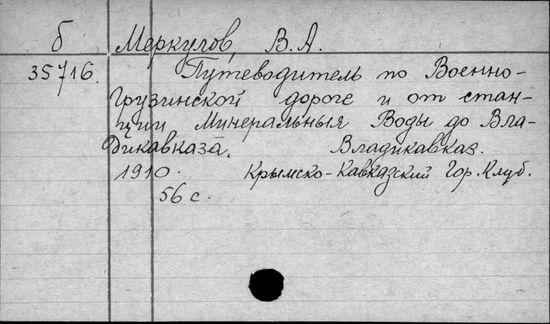 б Меркулов, В.А.
35716. Путеводитель по Военно-
Грузинской дороге и от стан-
ции Минеральныя Воды до Вла-
дикавказа. Владикавказ.
1910. Крымско-Кавказский Гор. Клуб.
56 с.